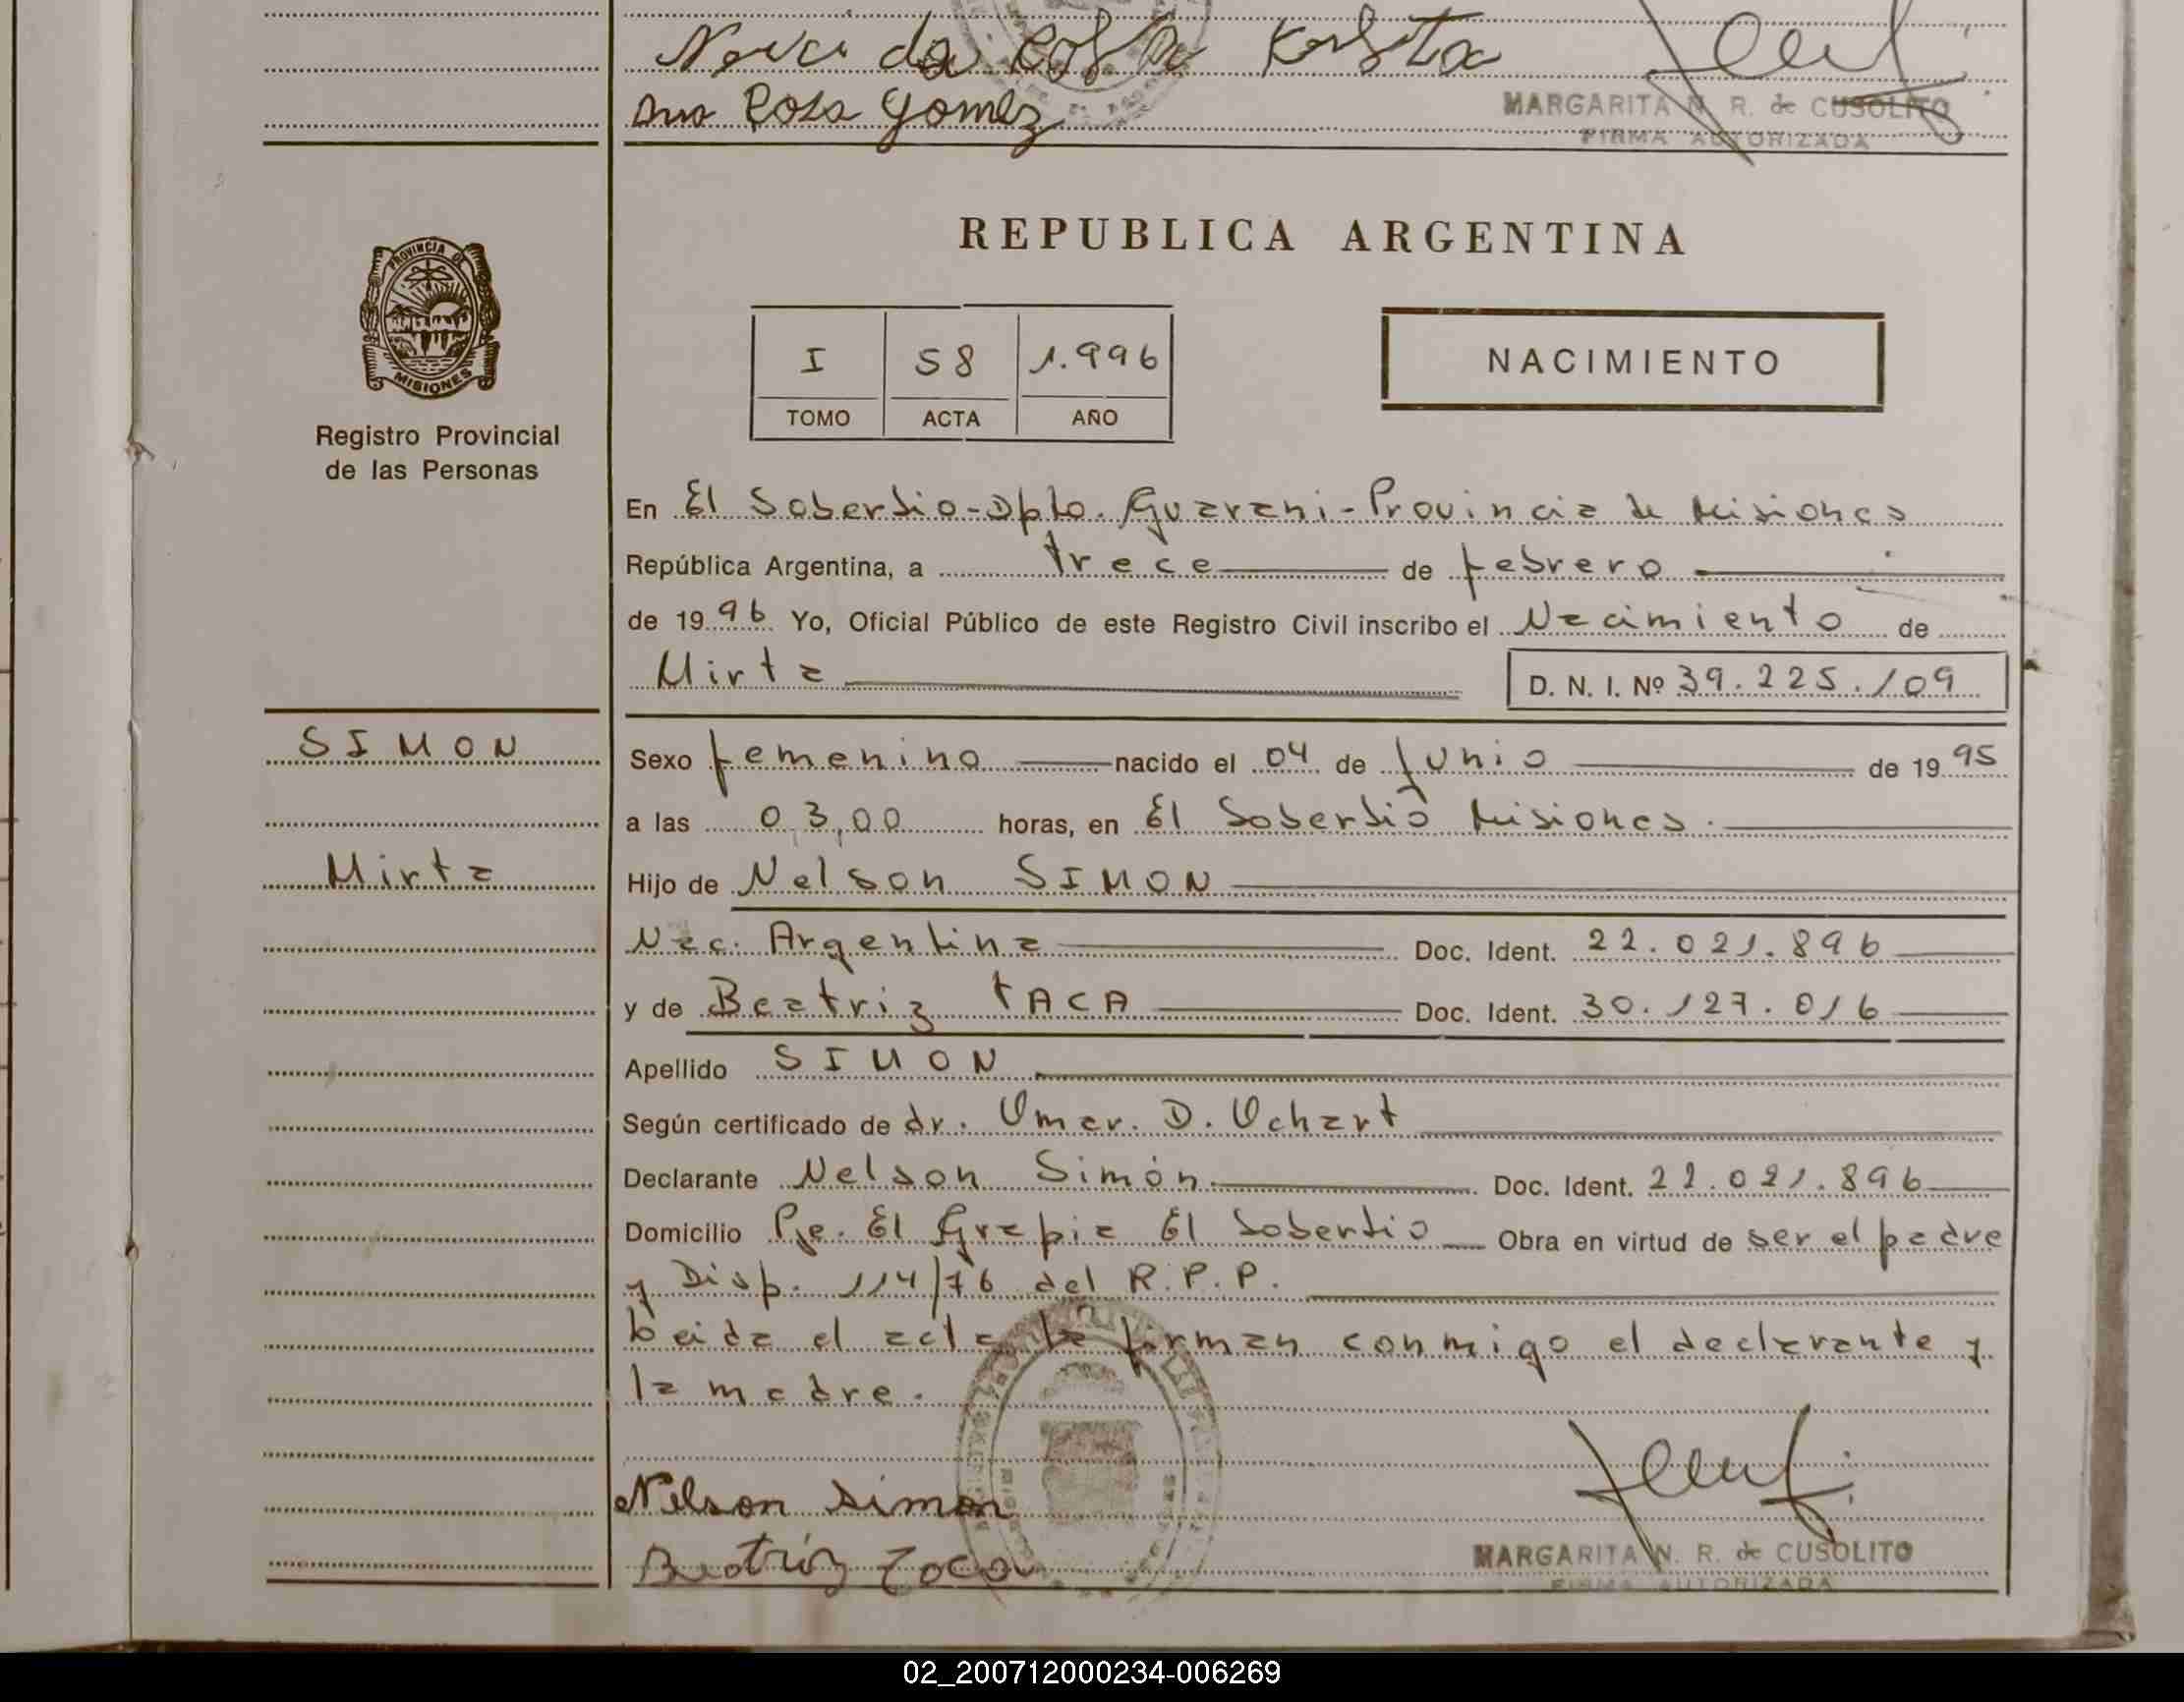 Ana Rosa Gomez
MARGARITA N. R. de CUSOLITO
FIRMA AUTORIZADA
REPUBLICA ARGENTINA
PROVINCIA DE
MISIONES
I 58 1.996
TOMO ACTA AÑO
NACIMIENTO
Registro Provincial
de las Personas
En El Soberbio-Dpto. Guarani-Provincia de Misiones
República Argentina, a trece de febrero
de 1996 Yo, Oficial Público de este Registro Civil inscribo el Nacimiento de
Mirta D. N. I. Nº 39.225.109
SIMON
Sexo femenino nacido el 04 de Junio de 1995
a las 03,00 horas, en El Soberbio Misiones.
Mirta
Hijo de Nelson SIMON
Nac. Argentina Doc. Ident. 22.021.896
y de Beatriz TACA Doc. Ident. 30.127.016
Apellido SIMON
Según certificado de dr. Omar. D. Uchart
Declarante Nelson Simón. Doc. Ident. 22.021.896
Domicilio Pje. El Grapia El Soberbio Obra en virtud de ser el padre
y Disp. 114/76 del R.P.P.
Leida el acta la firman conmigo el declarante y
la madre.
Nelson Simon
Beatriz
MARGARITA N. R. de CUSOLITO
FIRMA AUTORIZADA
02_200712000234-006269